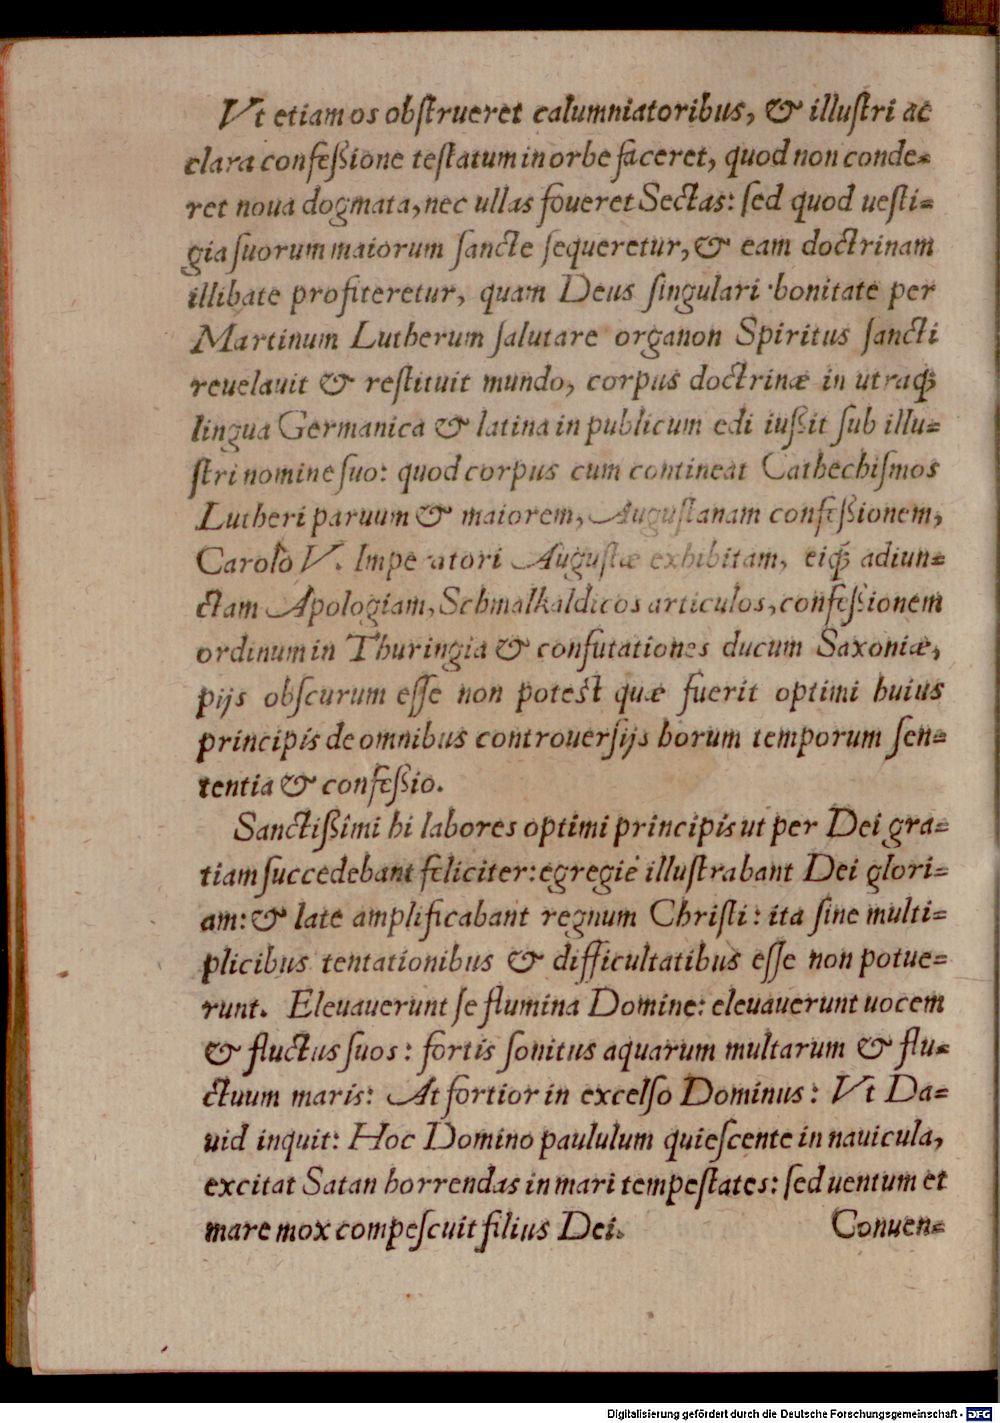 Vt etiam os obſtrueret calumniatoribus, & illuſtri ac
clara confeßione teſtatum in orbe faceret, quod non conde=
ret noua dogmata, nec ullas foueret Sectas: ſed quod ueſti=
gia ſuorum maiorum ſancte ſequeretur, & eam doctrinam
illibate profiteretur, quam Deus ſingulari bonitate per
Martinum Lutherum ſalutare organon Spiritus ſancti
reuelauit & reſtituit mundo, corpus doctrinæ in utraq́;
lingua Germanica & latina in publicum edi iußit ſub illu=
ſtri nomine ſuo: quod corpus cum contineat Cathechiſmos
Lutheri paruum & maiorem, Auguſtanam confeßionem,
Carolo V. Imperatori Auguſtæ exhibitam, eiq́; adiun=
ctam Apologiam, Schmalkaldicos articulos, confeßionem
ordinum in Thuringia & confutationes ducum Saxoniæ,
pijs obſcurum eſſe non poteſt quæ fuerit optimi huius
principis de omnibus controuerſijs horum temporum ſen=
tentia & confeßio.
Sanctißimi hi labores optimi principis ut per Dei gra=
tiam ſuccedebant feliciter: egregiè illuſtrabant Dei glori=
am: & late amplificabant regnum Chriſti: ita ſine multi=
plicibus tentationibus & difficultatibus eſſe non potue=
runt. Eleuauerunt ſe flumina Domine: eleuauerunt uocem
& fluctus ſuos: fortis ſonitus aquarum multarum & flu=
ctuum maris: At fortior in excelſo Dominus: Vt Da=
uid inquit: Hoc Domino paululum quieſcente in nauicula,
excitat Satan horrendas in mari tempeſtates: ſed uentum et
mare mox compeſcuit filius Dei.
Conuen=
Digitalisierung gefördert durch die Deutsche Forschungsgemeinschaft - DFG